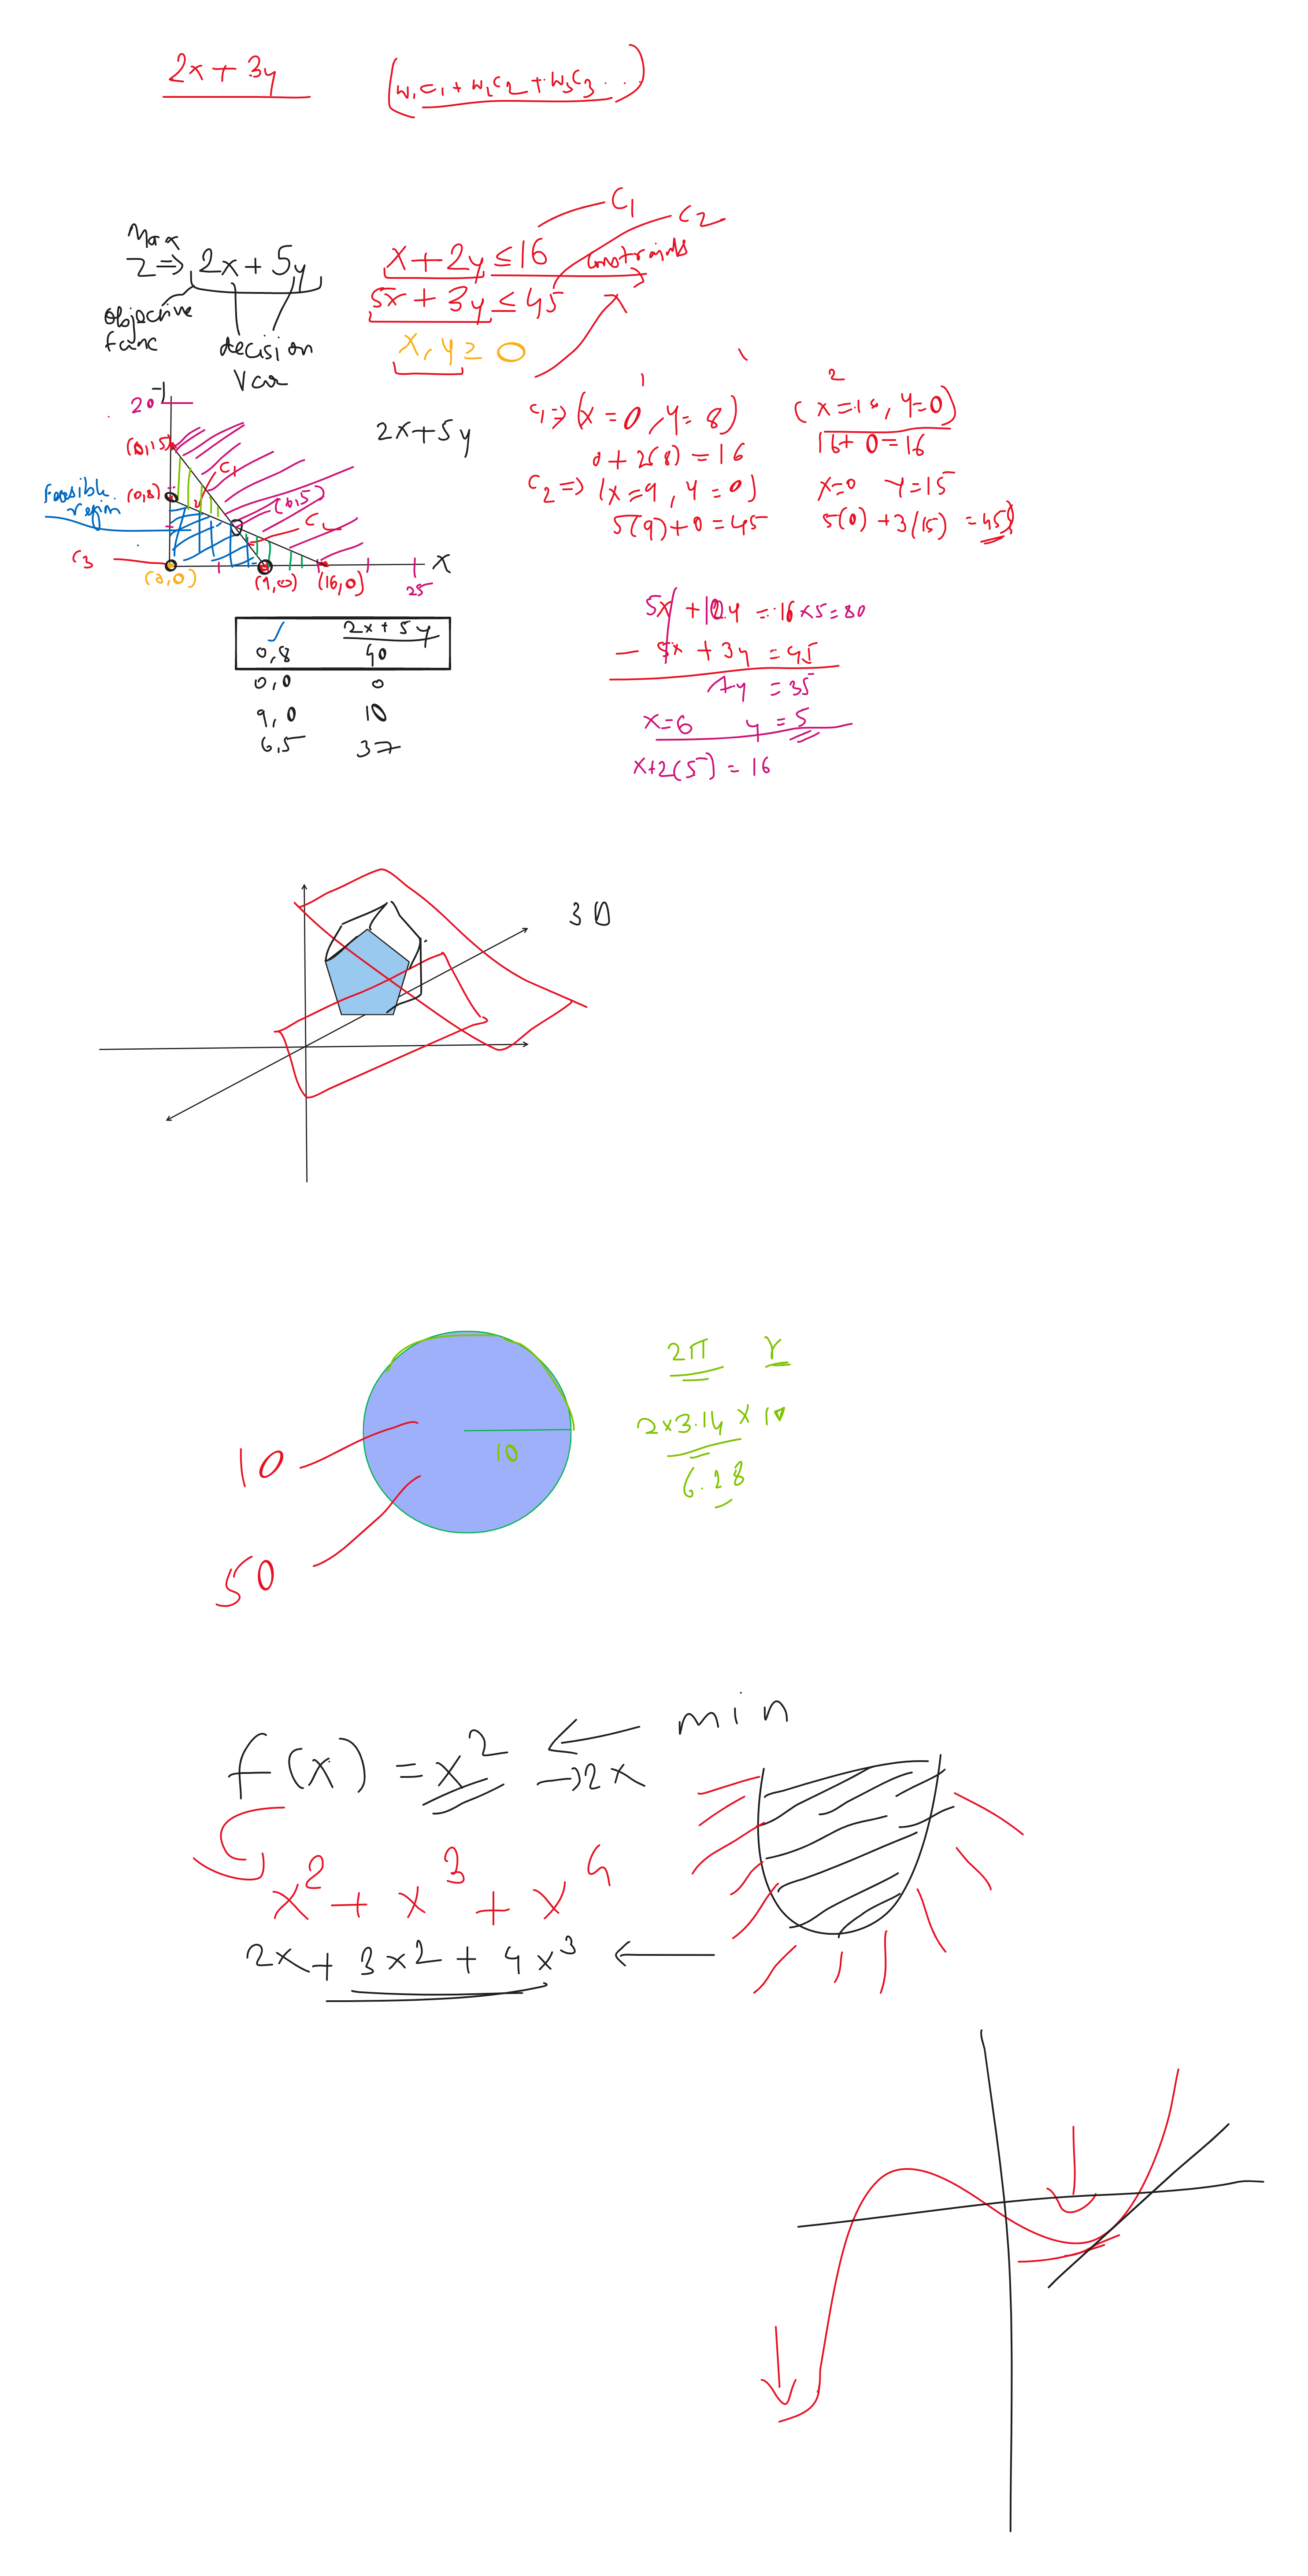 2x + 3y (w₁c₁ + w₂c₂ + w₃c₃ ...)
Max
Z => 2x + 5y
objective
func
decision
Var
x + 2y ≤ 16
5x + 3y ≤ 45
x, y ≥ 0
C₁
C₂
constraints
20
(0,15)
(0,8)
feasible
region
C₁
(6,5)
C₂
C₃
(0,0)
(9,0)
(16,0)
25
x
2x + 5y
1
2
C₁ => (x = 0, y = 8) (x = 16, y = 0)
0 + 2(8) = 16 16 + 0 = 16
C₂ => (x = 9, y = 0) x = 0 y = 15
5(9) + 0 = 45 5(0) + 3(15) = 45)
2x + 5y
0,8 40
0,0 0
9,0 10
6,5 37
5x + 10y = 16 x 5 = 80
- 5x + 3y = 45
7y = 35
x = 6 y = 5
x + 2(5) = 16
3D
10
50
10
2π r
2 x 3.14 x 10
6.28
f(x) = x² ← min
→ 2x
x² + x³ + x⁴
2x + 3x² + 4x³ ←